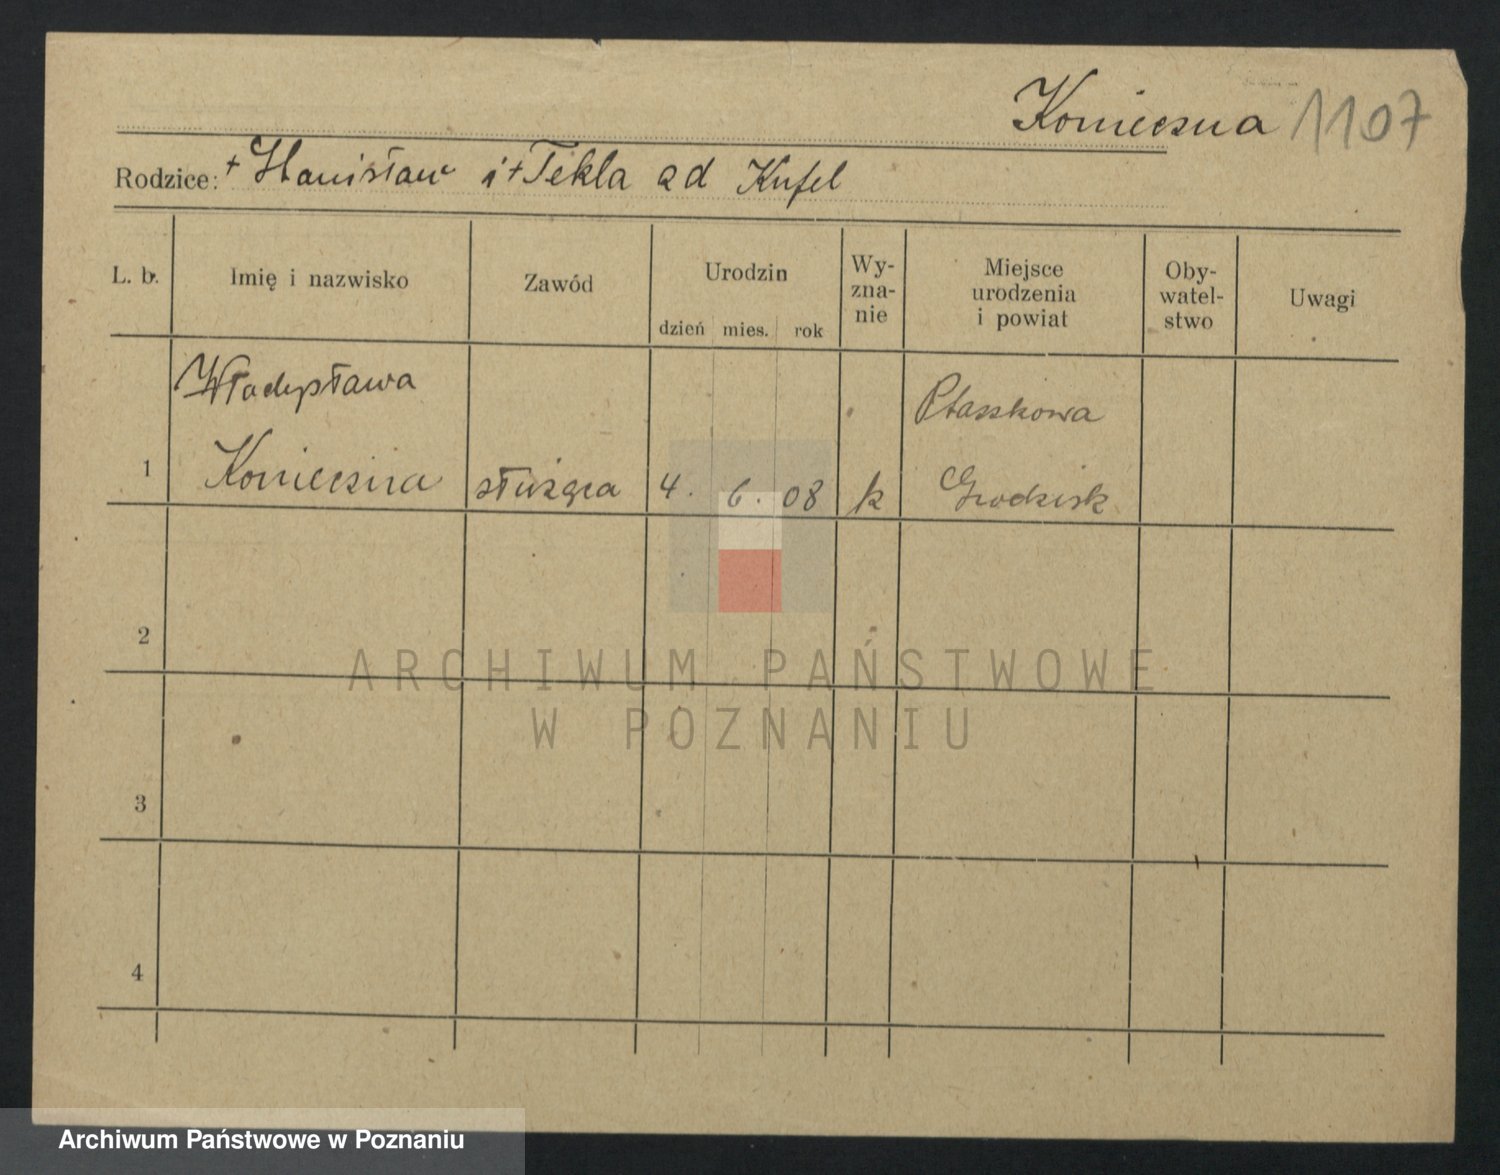 Konieczna 1107
Rodzice: + Stanisław i + Tekla ad Kufel
L. b. Imię i nazwisko Zawód Urodzin Wy- Miejsce Oby- Uwagi
zna- urodzenia watel-
dzień mies. rok nie i powiat stwo
Władysława Ptaszkowa
1 Konieczna służąca 4. 6. 08 k Grodzisk
2
3
4
ARCHIWUM PAŃSTWOWE
W POZNANIU
Archiwum Państwowe w Poznaniu